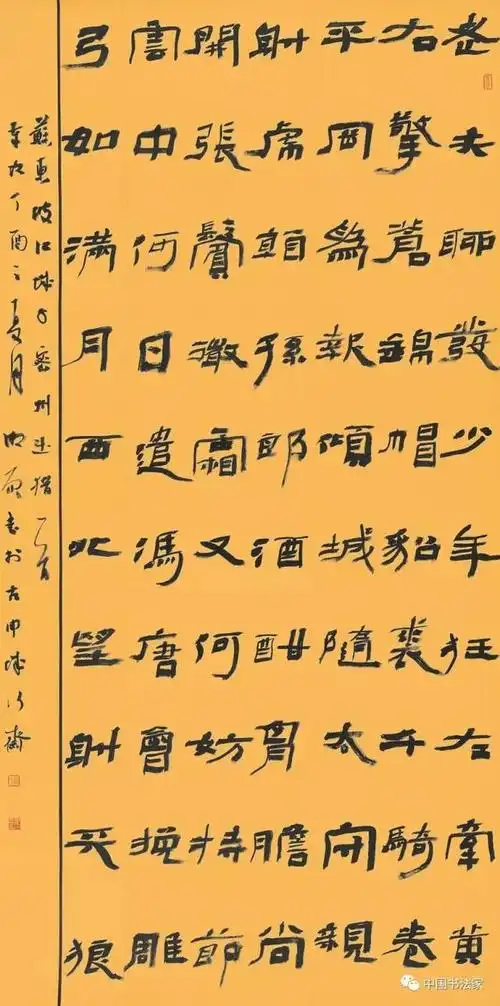 老夫聊發少年狂左牽黃
右擎蒼錦帽貂裘千騎卷
平岡為報傾城隨太守親
射虎孫郎酒酣胷膽尚
開張鬢微霜又何妨持節
雲中何日遣馮唐會挽雕
弓如滿月西北望射天狼
蘇東坡江城子密州出獵一首
丁酉之夏月書於古齋
中国书法家